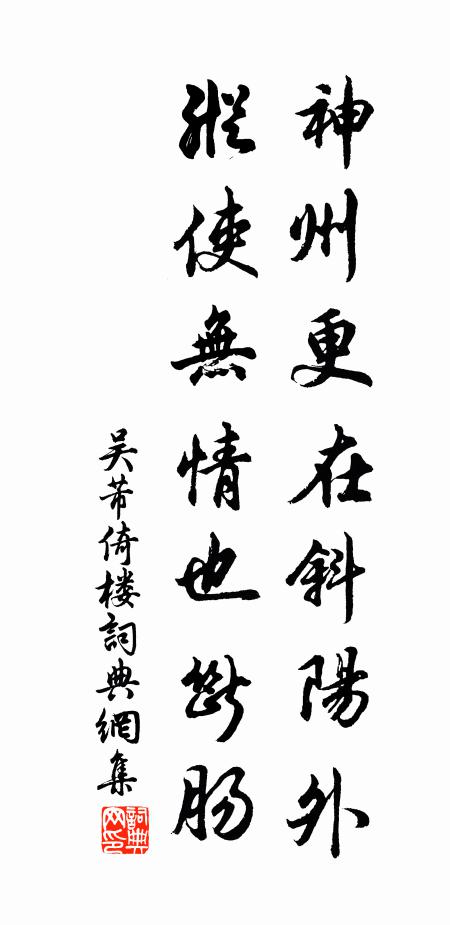 神州更在斜陽外
縱使無情也斷腸
吴芾倚楼詞典網集
詞典网印